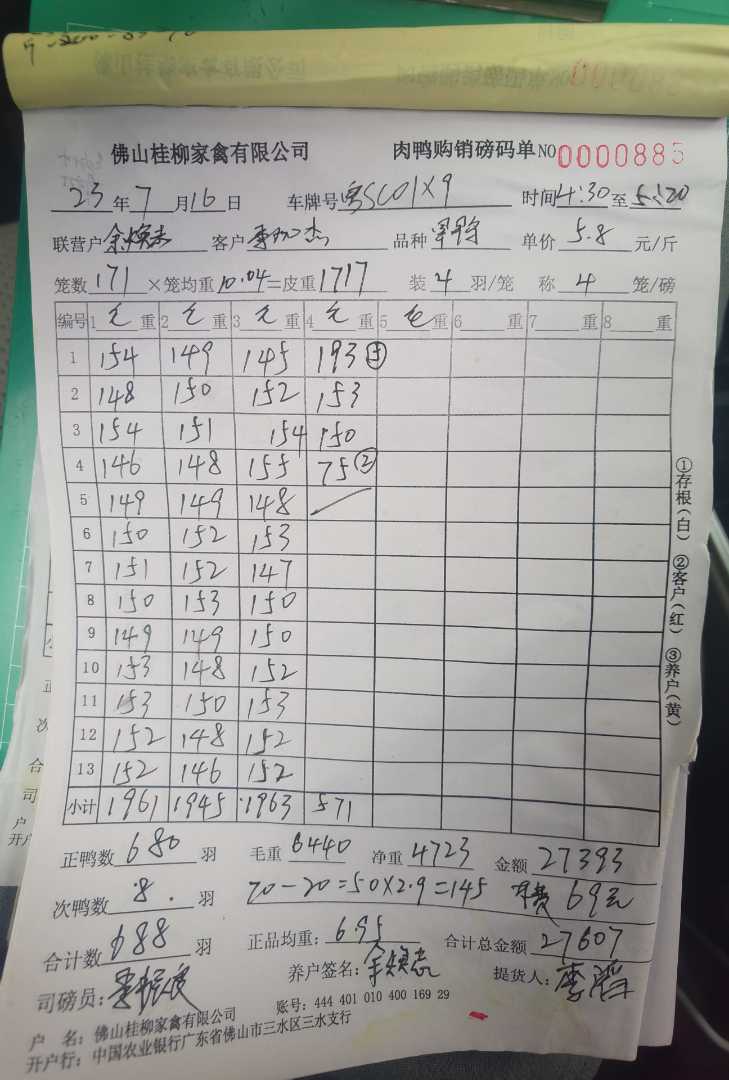 佛山桂柳家禽有限公司 肉鸭购销磅码单 NO 0000885
23年7月16日 车牌号粤SC01X9 时间4:30至5:20
联营户余焕志 客户 品种 单价5.8元/斤
笼数171×笼均重10.04=皮重1717 装4羽/笼 称4笼/磅
编号 1毛重 2毛重 3毛重 4毛重 5毛重 6重 7重 8重
1 154 149 145 193⑤
2 148 150 152 153
3 154 151 154 150
4 146 148 155 75②
5 149 149 148
6 150 152 153
7 151 152 147
8 150 153 150
9 149 149 150
10 153 148 152
11 153 150 153
12 152 148 152
13 152 146 152
小计 1961 1945 1963 571
①存根(白) ②客户(红) ③养户(黄)
正鸭数680羽 毛重6440 净重4723 金额27393
次鸭数8.羽 70-20=50×2.9=145 69元
合计数688羽 正品均重:6.95 合计总金额27607
司磅员: 养户签名:余焕志 提货人:
户 名:佛山桂柳家禽有限公司 账号:444 401 010 400 169 29
开户行:中国农业银行广东省佛山市三水区三水支行